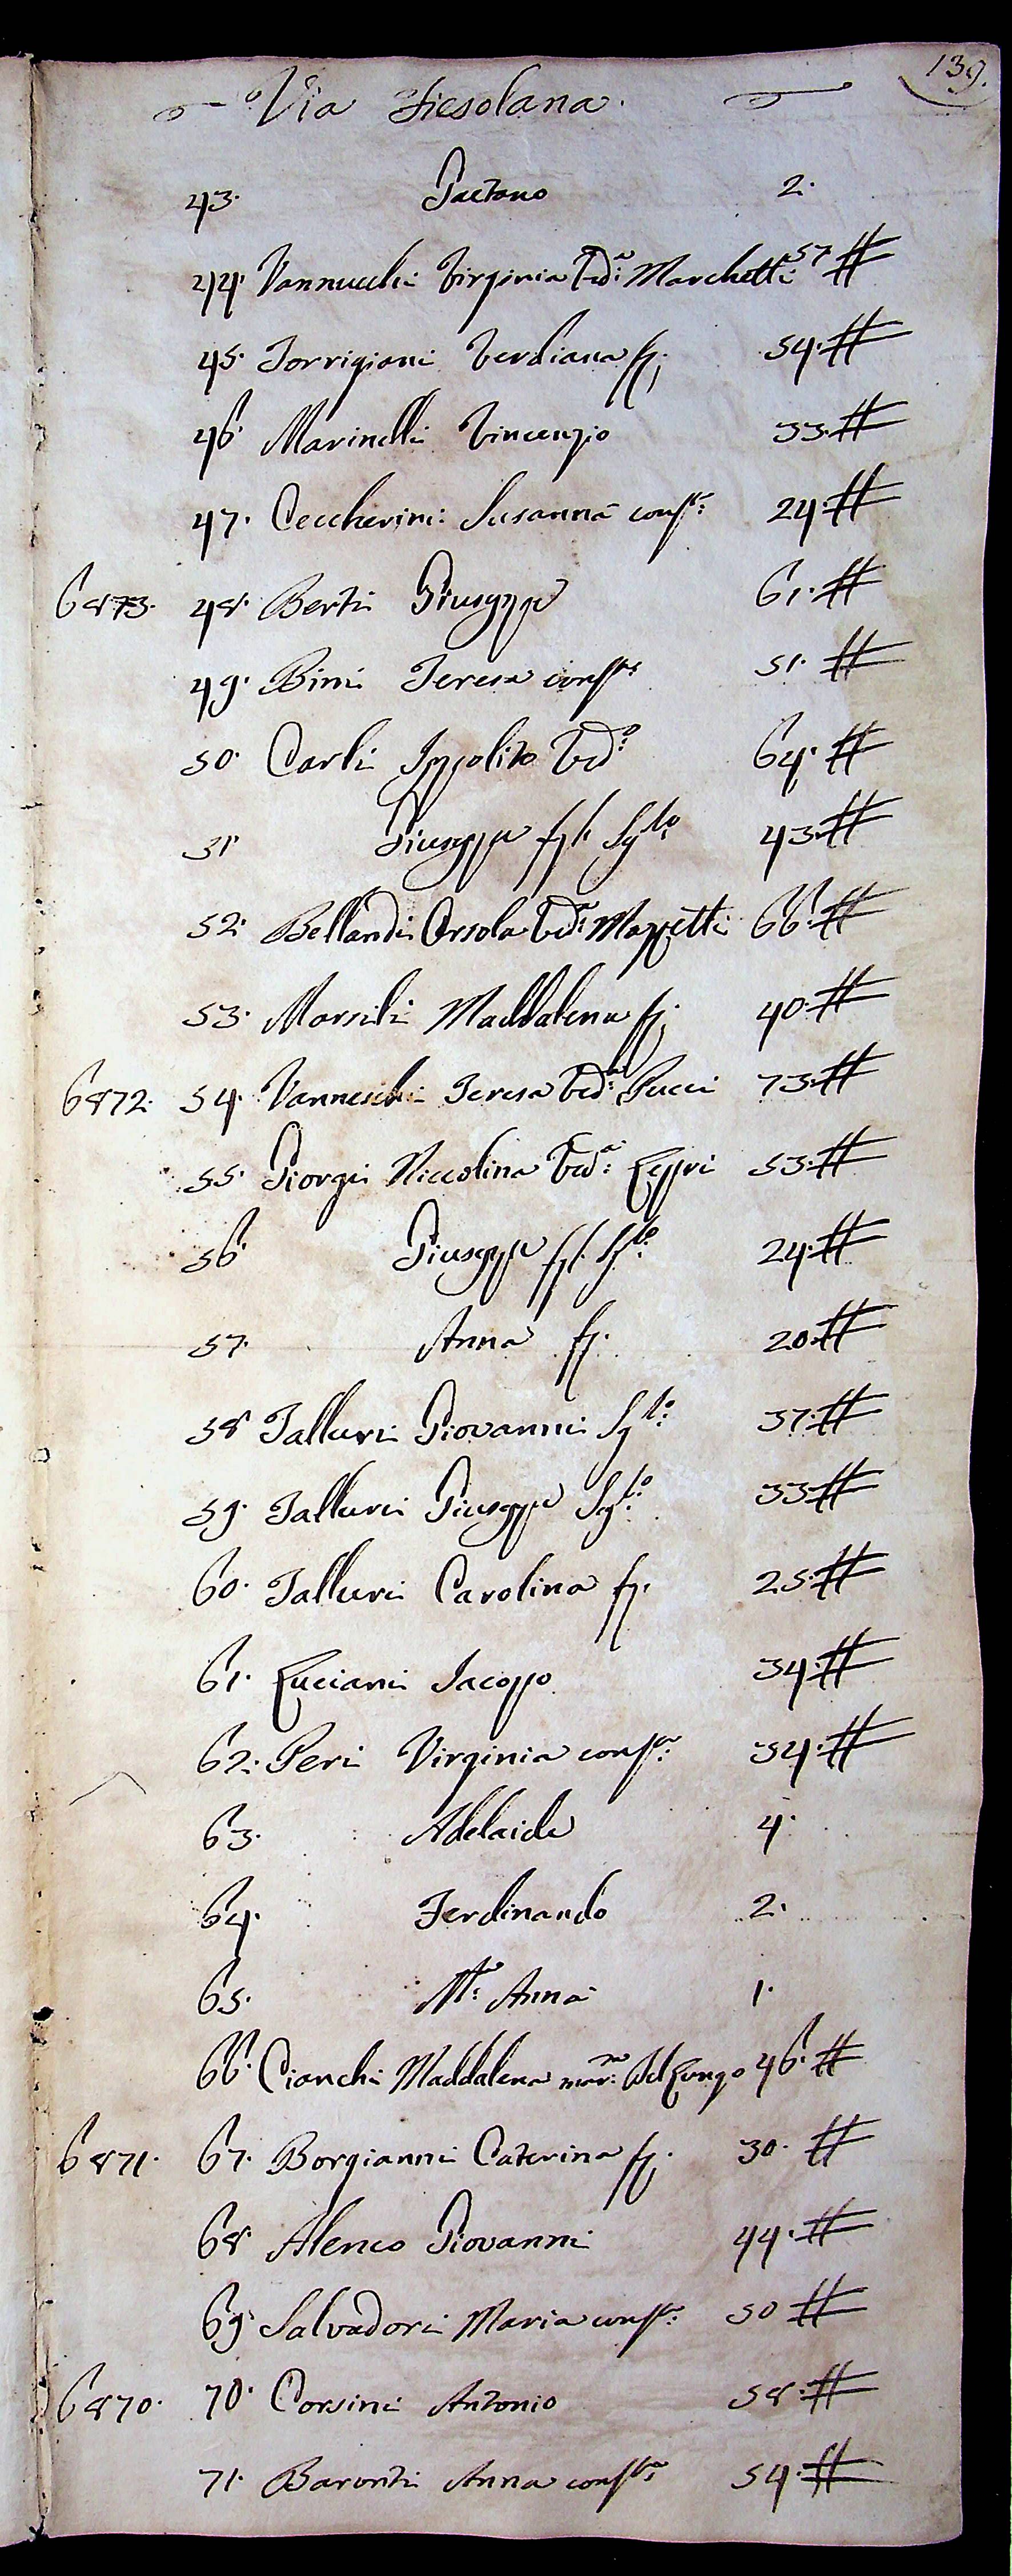 139.
Via Fiesolana.
43. Gaetano 2.
44. Vannucchi Virginia Ved.a Marchetti 57 #
45. Torrigiani Verdiana f. 54. #
46. Marinelli Vincenzio 33. #
47. Ceccherini Susanna cons.te 24. #
6873. 48. Berti Giuseppe 61. #
49. Bini Teresa cons.te 51. #
50. Carli Ippolito Ved.o 64. #
51. Giuseppe f.l. Sg.lo 43. #
52. Bellandi Orsola Ved.a Mazzetti 66. #
53. Marsili Maddalena f. 40. #
6872. 54. Vanneschi Teresa Ved.a Pucci 73. #
55. Giorgi Niccolina Ved.a Leppri 53. #
56. Giuseppe f.l. Sg.lo 24. #
57. Anna f. 20. #
58. Talluri Giovanni Sg.lo 37. #
59. Talluri Giuseppe Sg.lo 33 #
60. Talluri Carolina f. 25. #
61. Luciani Jacopo 34. #
62. Peri Virginia cons.te 34. #
63. Adelaide 4.
64. Ferdinando 2.
65. M.a Anna 1.
66. Cianchi Maddalena mar.ta Del Lungo 46. #
6871. 67. Borgianni Caterina f. 30. #
68. Alenco Giovanni 44. #
69. Salvadori Maria cons.te 50 #
6870. 70. Corsini Antonio 58. #
71. Baronti Anna cons.te 54. #